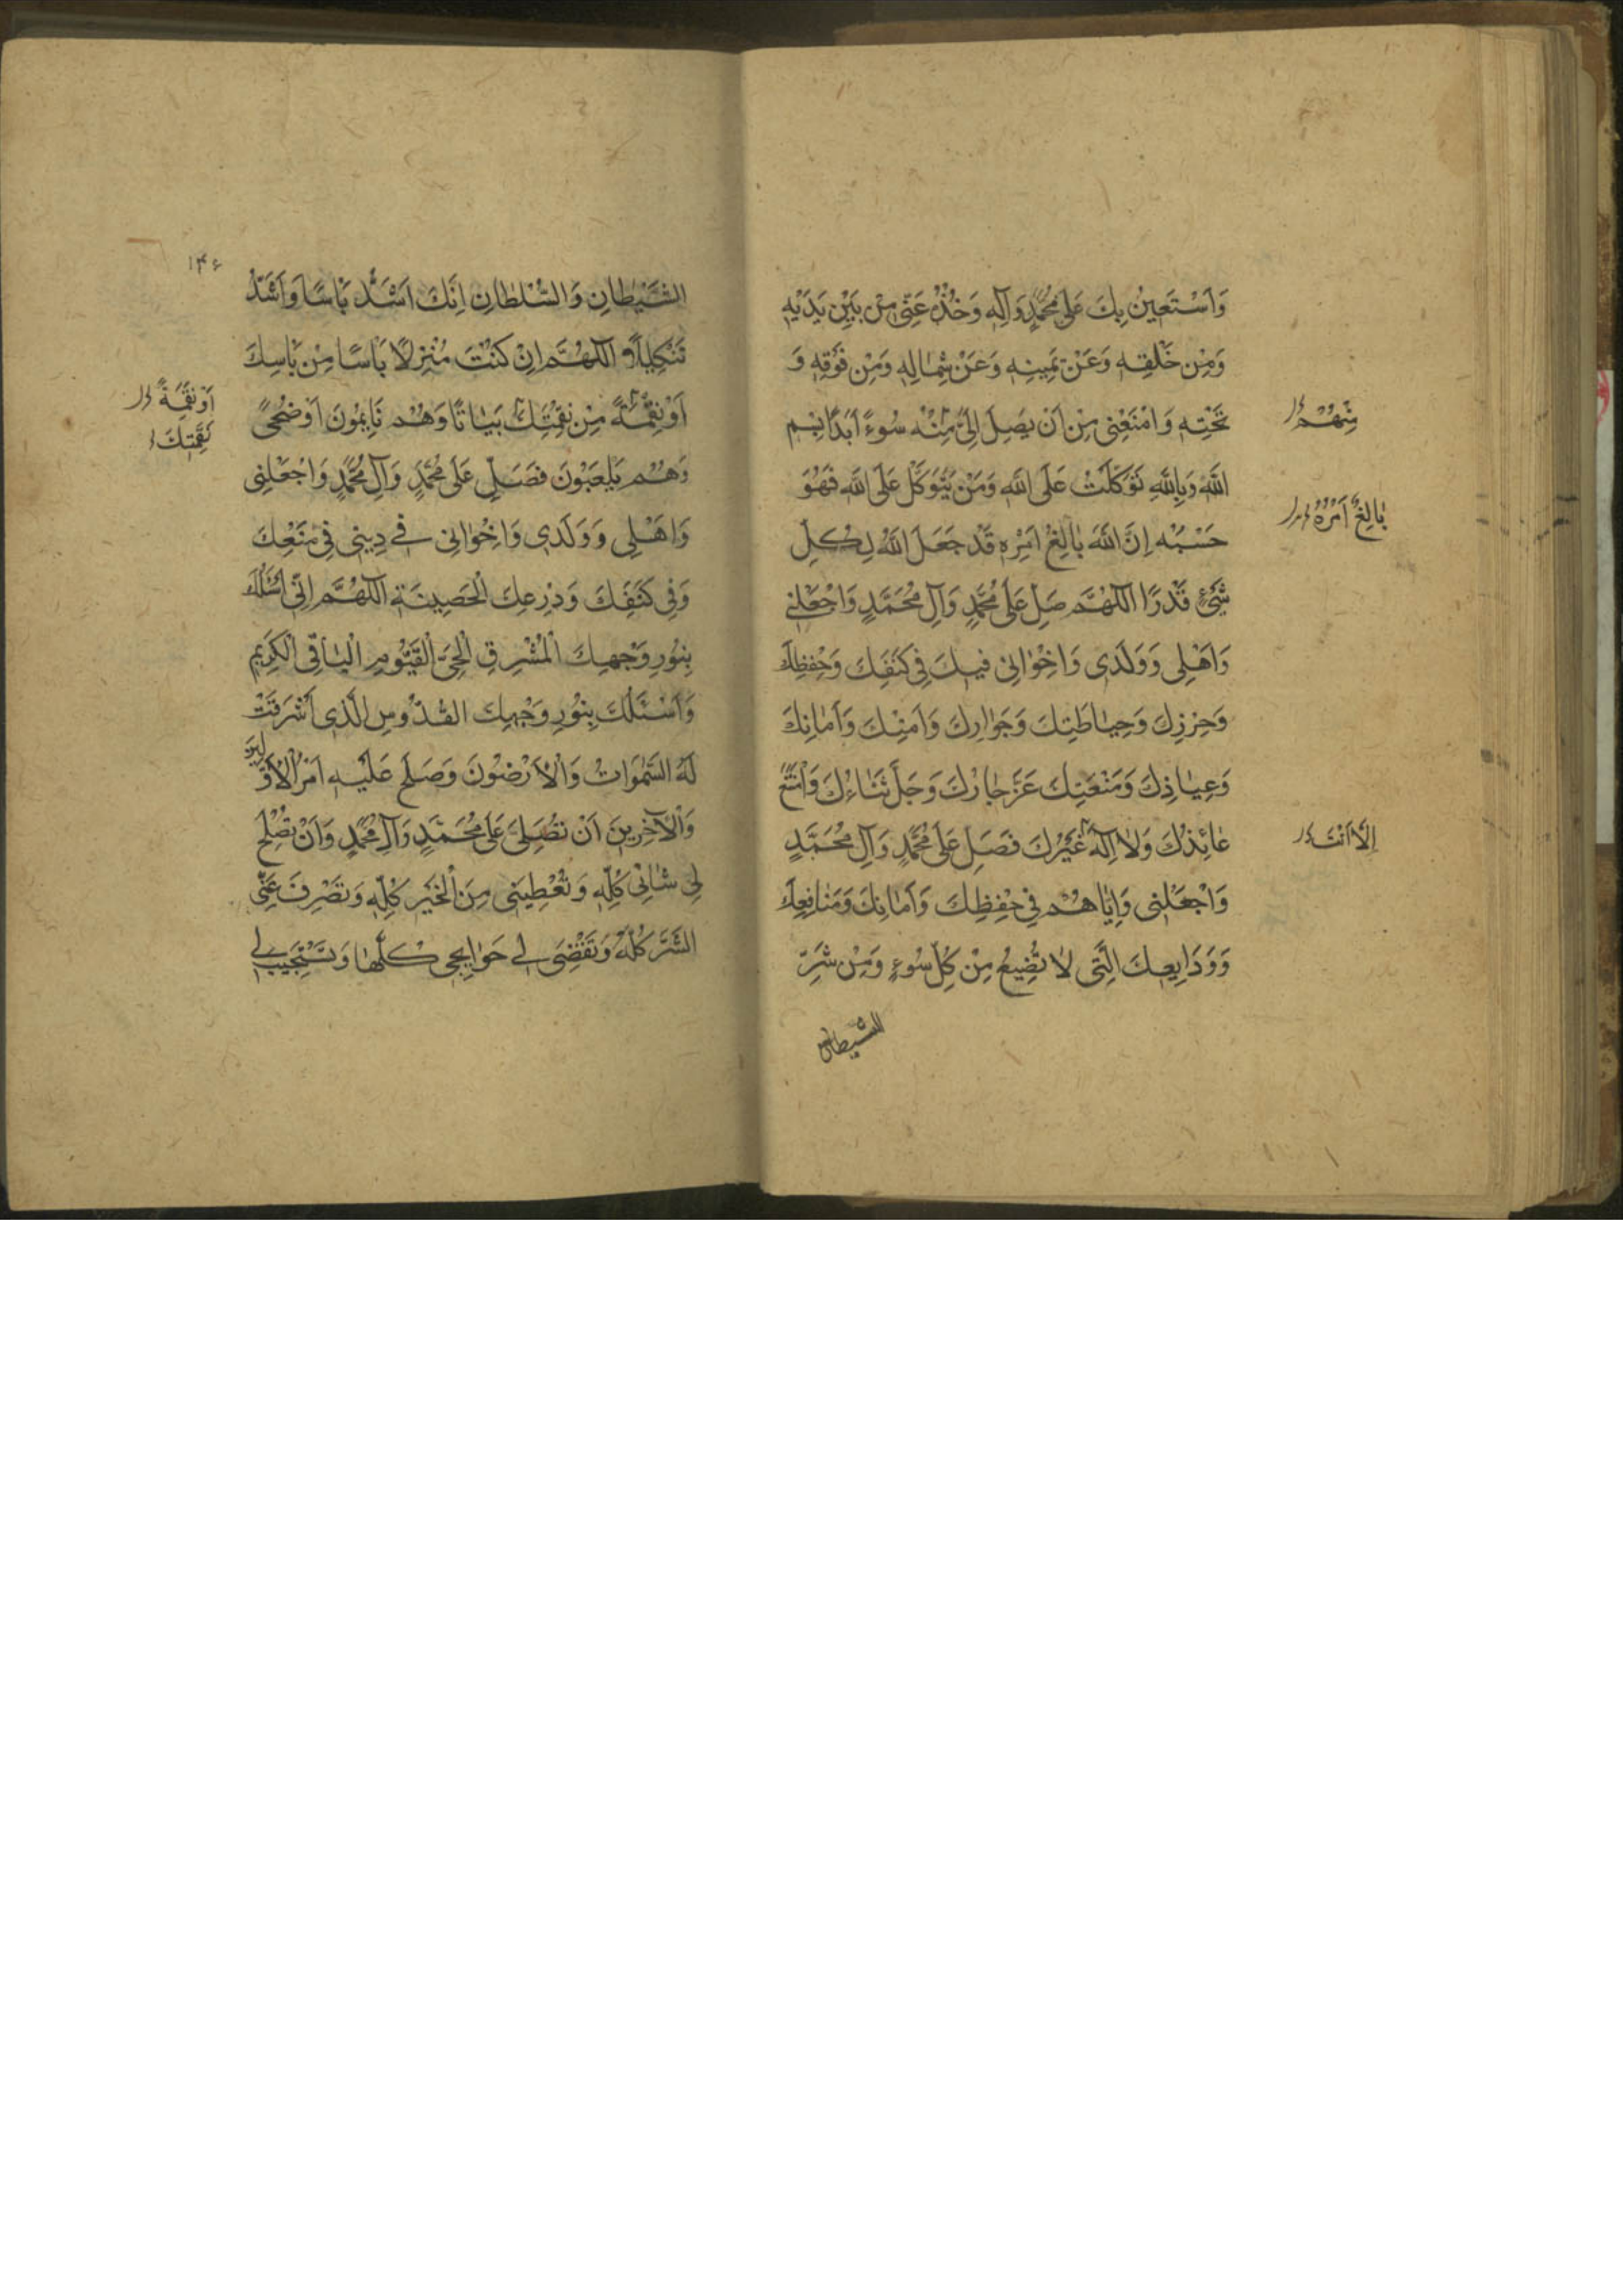 وَاَسْتَعِينُ بِكَ عَلىٰ مُحَمَّدٍ وَآلِهِ وَخُذْهُ عَنِّى مِنْ بَيْنِ يَدَيْهِ
وَمِنْ خَلْفِهِ وَعَنْ يَمِينِهِ وَعَنْ شِمٰالِهِ وَمِنْ فَوْقِهِ وَ
تَحْتِهِ وَامْنَعْنِى مِنْ اَنْ يَصِلَ اِلَىَّ مِنْهُ سُوءٌ اَبَدًا بِسْمِ
مِنْهُمْ
اللّٰهِ وَبِاللّٰهِ تَوَكَّلْتُ عَلَى اللّٰهِ وَمَنْ يَتَوَكَّلْ عَلَى اللّٰهِ فَهُوَ
حَسْبُهُ اِنَّ اللّٰهَ بٰالِغُ اَمْرِهِ قَدْ جَعَلَ اللّٰهُ لِكُلِّ
بٰالِغٌ اَمْرُهُ
شَىْءٍ قَدْرًا اَللّٰهُمَّ صَلِّ عَلىٰ مُحَمَّدٍ وَآلِ مُحَمَّدٍ وَاجْعَلْنِى
وَاَهْلِى وَوَلَدِى وَاِخْوٰانِى فِيكَ فِى كَنَفِكَ وَحِفْظِكَ
وَحِرْزِكَ وَحِيٰاطَتِكَ وَجَوٰارِكَ وَاَمْنِكَ وَاَمٰانِكَ
وَعِيٰاذِكَ وَمَنْعَتِكَ عَزَّ جٰارُكَ وَجَلَّ ثَنٰاءُكَ وَامْتَنَعَ
عٰائِذُكَ وَلٰا اِلٰهَ غَيْرُكَ فَصَلِّ عَلىٰ مُحَمَّدٍ وَآلِ مُحَمَّدٍ
اِلّٰا اَنْتَ
وَاجْعَلْنِى وَاِيّٰاهُمْ فِى حِفْظِكَ وَاَمٰانِكَ وَمَنٰافِعِكَ
وَوَدٰايِعِكَ الَّتِى لٰا تُضِيعُ مِنْ كُلِّ سُوءٍ وَمِنْ شَرِّ
الشيطان
۱۴۶
الشَّيْطٰانِ وَالسُّلْطٰانِ اِنَّكَ اَشَدُّ بَاْسًا وَاَشَدُّ
تَنْكِيلًا اَللّٰهُمَّ اِنْ كُنْتَ مُنْزِلًا بَاْسًا مِنْ بَاْسِكَ
اَوْ نِقْمَةً مِنْ نِقْمَتِكَ بَيٰاتًا وَهُمْ نٰايِمُونَ اَوْ ضُحًى
اَوْ نَقِمَةً
نَقِمَتِكَ
وَهُمْ يَلْعَبُونَ فَصَلِّ عَلىٰ مُحَمَّدٍ وَآلِ مُحَمَّدٍ وَاجْعَلْنِى
وَاَهْلِى وَوَلَدِى وَاِخْوٰانِى فِى دِينِى فِى مَنْعِكَ
وَفِى كَنَفِكَ وَدِرْعِكَ الْحَصِينَةِ اَللّٰهُمَّ اِنِّى اَسْئَلُكَ
بِنُورِ وَجْهِكَ الْمُشْرِقِ الْحَىِّ الْقَيُّومِ الْبٰاقِى الْكَرِيمِ
وَاَسْئَلُكَ بِنُورِ وَجْهِكَ الْقُدُّوسِ الَّذِى اَشْرَقَتْ
لَهُ السَّمٰوَاتُ وَالْاَرَضُونَ وَصَلَحَ عَلَيْهِ اَمْرُ الْاَوَّلِينَ
وَالْآخِرِينَ اَنْ تُصَلِّىَ عَلىٰ مُحَمَّدٍ وَآلِ مُحَمَّدٍ وَاَنْ تُصْلِحَ
لِى شٰانِى كُلَّهُ وَتُعْطِيَنِى مِنَ الْخَيْرِ كُلِّهِ وَتَصْرِفَ عَنِّى
الشَّرَّ كُلَّهُ وَتَقْضِىَ لِى حَوٰايِجِى كُلَّهٰا وَتَسْتَجِيبَ لِى